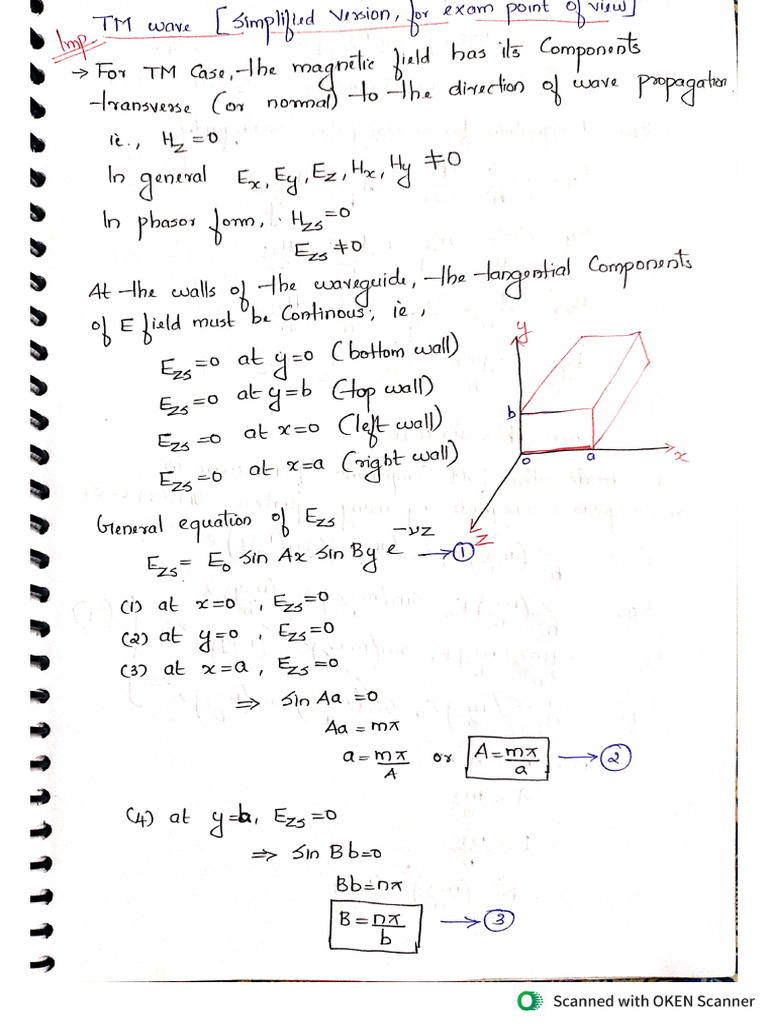 TM wave [simplified version, for exam point of view]
Imp.
→ For TM Case, the magnetic field has its Components
transverse (or normal) to the direction of wave propagation
ie., H_z = 0.
In general E_x, E_y, E_z, H_x, H_y ≠ 0
In phasor form, H_zs = 0
E_zs ≠ 0
At the walls of the waveguide, the tangential Components
of E field must be Continous; ie,
E_zs = 0 at y=0 (bottom wall)
E_zs = 0 at y=b (top wall)
E_zs = 0 at x=0 (left wall)
E_zs = 0 at x=a (right wall)
y
b
o
a
x
z
General equation of E_zs
E_zs = E_0 sin Ax sin By e^{-νz} → ①
(1) at x=0, E_zs=0
(2) at y=0, E_zs=0
(3) at x=a, E_zs=0
⇒ sin Aa = 0
Aa = mπ
a = mπ/A or A = mπ/a → ②
(4) at y=b, E_zs=0
⇒ sin Bb=0
Bb=nπ
B = nπ/b → ③
Scanned with OKEN Scanner